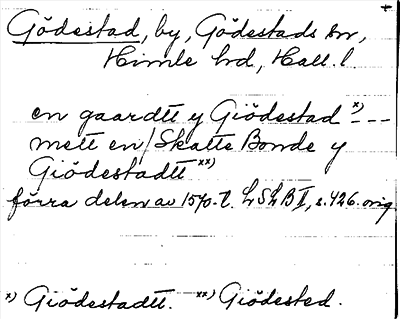 Gödestad, by, Gödestads sn,
Himle hd, Hall. l.
en gaardtt y Giödestad x) ---
mett en / Skatte Bonde y
Giödestadtt xx)
förra delen av 1570-t. LSLB II, s. 426. orig
x) Giödestadtt. xx) Giödested.